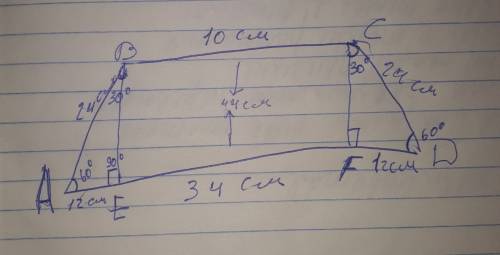 10 см
B
C
24 см
30°
44см
30°
24 см
60°
90°
60°
A
12см
E
34 см
F
12см
D